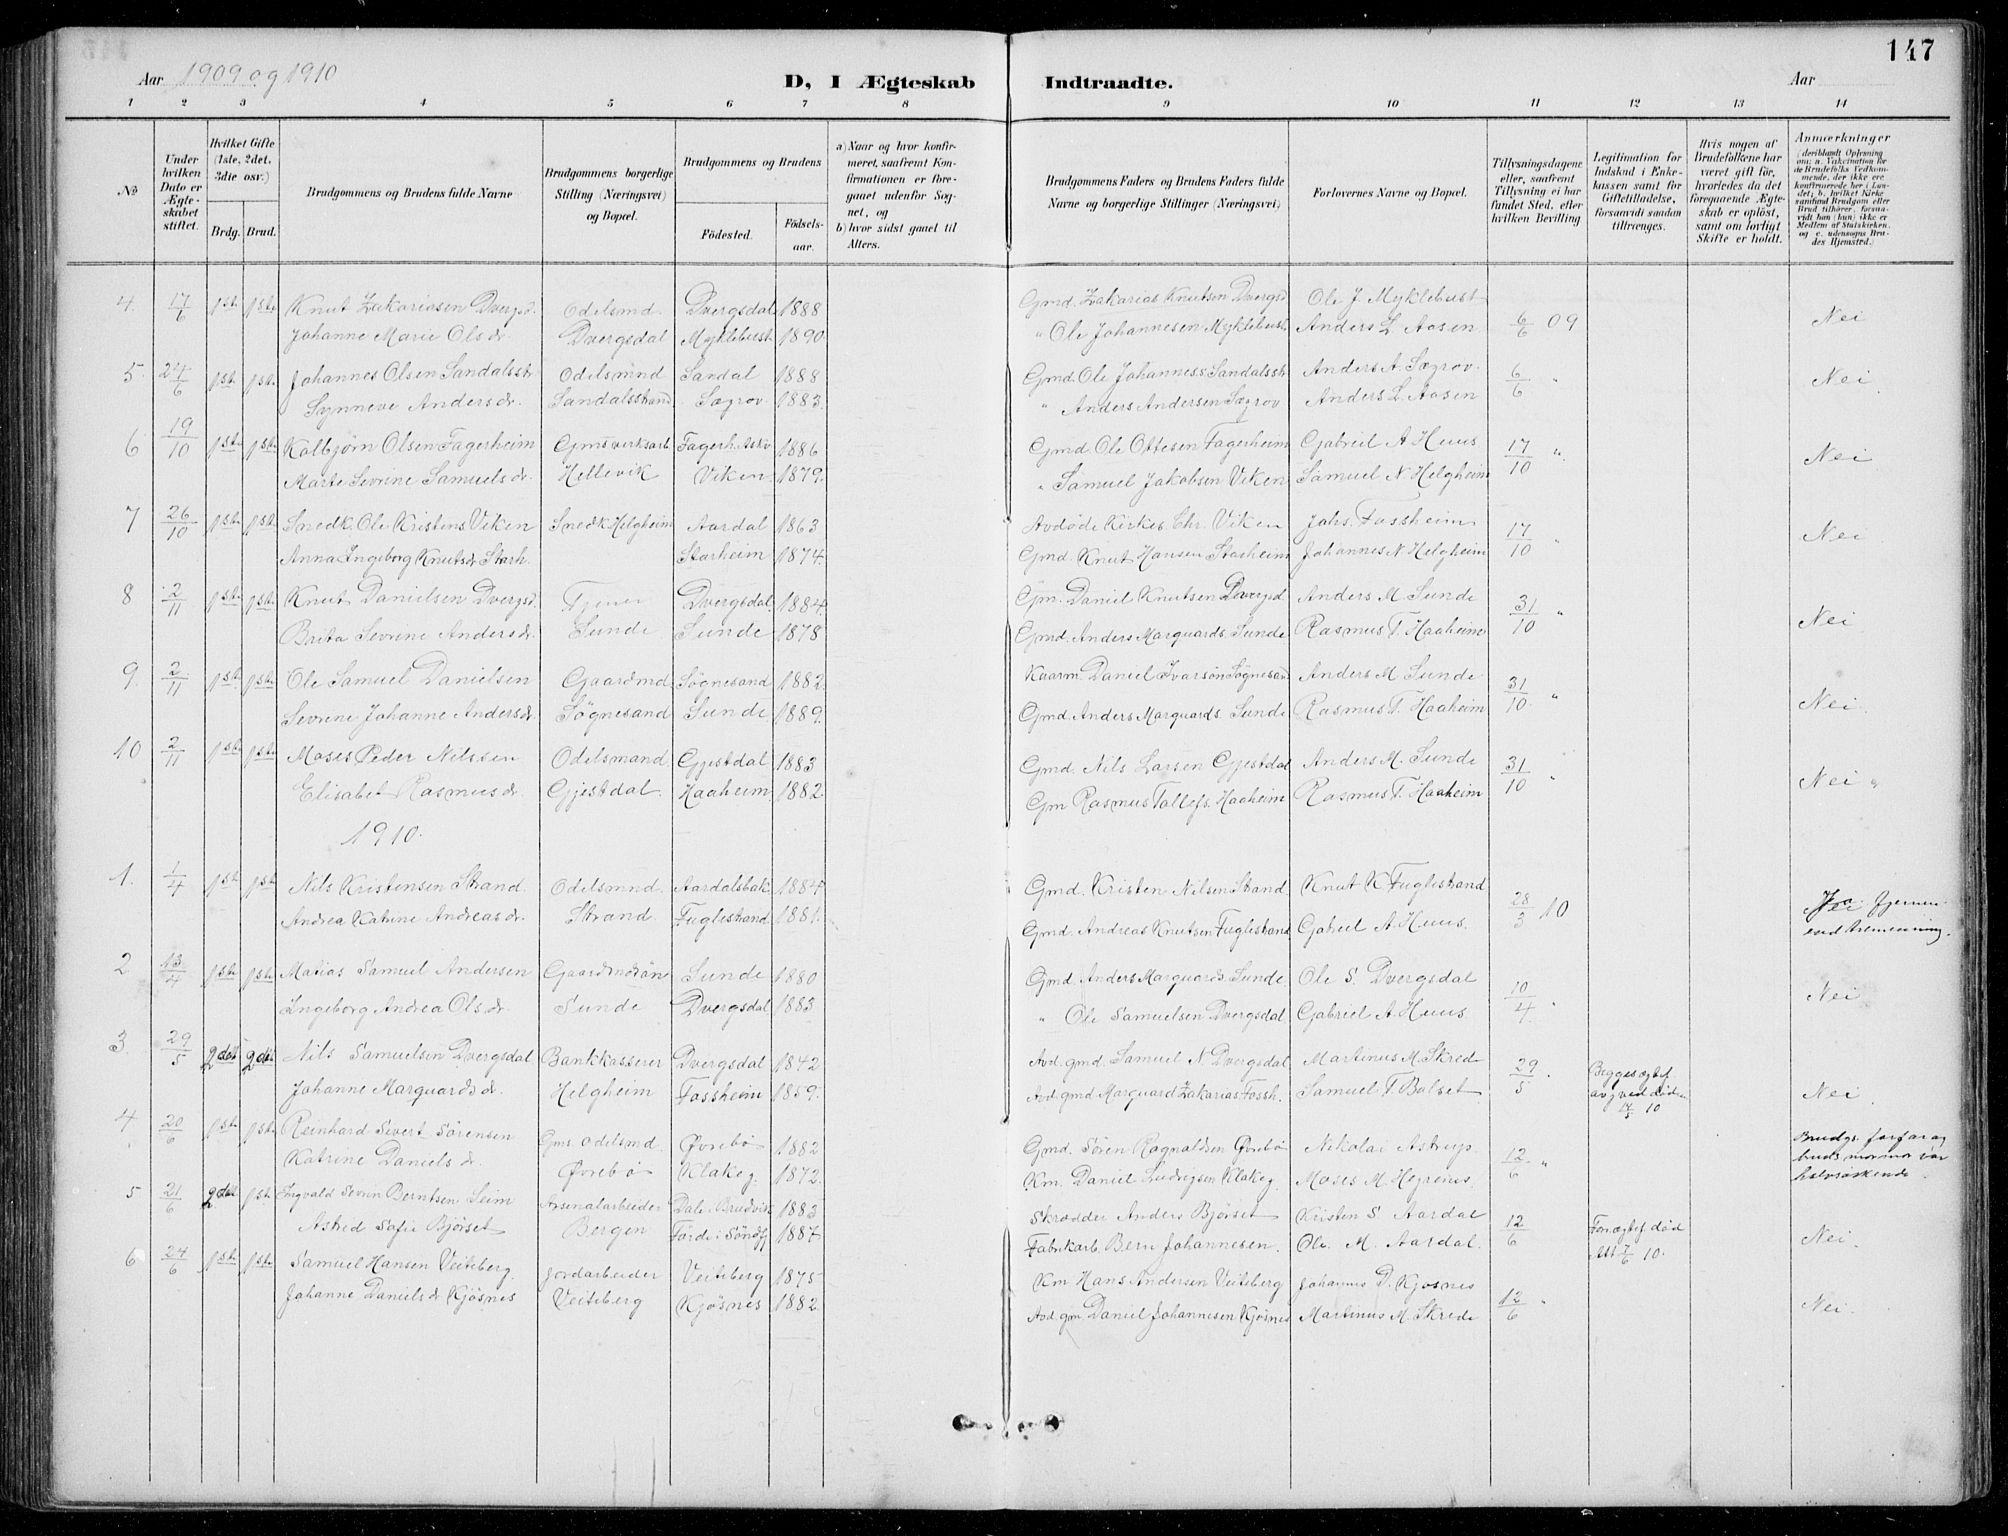 147
Aar 1909 og 1910
D, I Ægteskab Indtraadte.
Aar
1 2 3 4 5 6 7 8 9 10 11 12 13 14
No
Under hvilken Dato er Ægteskabet stiftet.
Hvilket Gifte (1ste, 2det, 3die osv.)
Brdg. Brud.
Brudgommens og Brudens fulde Navne
Brudgommens borgerlige Stilling (Næringsvei) og Bopæl.
Brudgommens og Brudens
Födested. Födselsaar.
a) Naar og hvor konfirmeret, saafremt Konfirmationen er foregaaet udenfor Sognet, og
b) hvor sidst gaaet til Alters.
Brudgommens Faders og Brudens Faders fulde Navne og borgerlige Stillinger (Næringsvei)
Forlovernes Navne og Bopæl.
Tillysningsdagene eller, saafremt Tillysning ei har fundet Sted, efter hvilken Bevilling
Legitimation for Indskud i Enkekassen samt for Giftetilladelse, forsaavidt saadan tiltrænges.
Hvis nogen af Brudefolkene har været gift för, hvorledes da det foregaaende Ægteskab er oplöst, samt om lovligt Skifte er holdt.
Anmærkninger
4. 17/6 1ste 1ste Knut Zakariasen Dvergsd. Odelsmd. Dvergsdal 1888 Gmd. Zakarias Knutsen Dvergsd Ole J. Myklebust 6/6 09 Nei
Johanne Marie Olsdr. Dvergsdal Myklebust 1890 " Ole Johannesen Myklebust Anders L Aasen
5 24/6 1ste 1ste Johannes Olsen Sandalsstr Odelsmnd Sandal 1888 Gmd. Ole Johanness Sandalsstr Anders A. Sægrov 6/6 " Nei
Synneve Andersdr. Sandalsstrand Sægrov 1883. " Anders Andersen Sægrov Anders L. Aasen
6 19/10 1ste 1ste Kolbjørn Olsen Fagerheim Gmsverksarb. 1886 Gmd Ole Ottesen Fagerheim Gabriel A Huus 17/10 " Nei
Marte Sevrine Samuelsdr. Hellevik Viken 1879. " Samuel Jakobsen Viken Samuel N Helgheim
7 26/10 1ste 1ste Snedk. Ole Kristens Viken Snedk Helgheim Aardal 1863 Avdøde Kirkes. Chr. Viken Johs. Fossheim 17/10 " Nei
Anna Ingeborg Knutsdr Starh. Starheim 1874. Gmd. Knut Hansen Starheim Johannes N Helgheim
8 2/11 1ste 1ste Knut Danielsen Dvergsd. Tjener Dvergsdal 1884. Gm. Daniel Knutsen Dvergsd Anders M Sunde 31/10 " Nei
Brita Sevrine Andersdr. Sunde Sunde 1878 Gmd. Anders Marquards. Sunde Rasmus T. Haaheim
9. 2/11 1ste 1ste Ole Samuel Danielsen Gaardmd Søgnesand 1882 Kaarm. Daniel Ivarsøn Søgnesan Anders M Sunde 31/10 " Nei
Sevrine Johanne Andersdr. Søgnesand Sunde 1889. Gmd. Anders Marquards. Sunde Rasmus T. Haaheim
10 2/11 1ste 1ste Moses Peder Nilssen Odelsmand Gjestdal 1883 Gmd. Nils Larsen Gjestdal Anders M. Sunde 31/10 " Nei "
Elisabet Rasmusdr. Gjestdal. Haaheim 1882. Gm Rasmus Tollefs. Haaheim Rasmus T. Haaheim
1910.
1. 1/4 1ste 1ste Nils Kristensen Strand. Odelsmnd. Aardalsbak. 1884 Gmd. Kristen Nilsen Strand Knut K Fuglestrand 28/3 10 Ja. fjernere
Andrea Katrine Andreasdr. Strand Fuglestrand 1881. Gmd. Andreas Knutsen Fuglestrand Gabriel A Huus. end tremenning.
2 13/4 1ste 1ste Matias Samuel Andersen Gaardmdsøn Sunde 1880 Gmd. Anders Marquards. Sunde. Ole S. Dvergsdal 10/4 " Nei
Ingeborg Andrea Olsdr. Sunde Dvergsdal 1883 " Ole Samuelsen Dvergsdal Gabriel A Huus.
3. 29/5 2det 2det Nils Samuelsen Dvergsdal Bankkasserer Dvergsdal 1842 Avd. gmd. Samuel N Dvergsdal Martinus M. Skrede 29/5 . Nei
Johanne Marquardsdr. Helgheim Fossheim 1859. Avd. gmd Marquard Zakarias. Fossh. Samuel T Bolset Begges egtef avg ved død 14/5 10
4 20/6 1ste 1ste Reinhard Sivert Sörensen Gms. odelsmd. Øvrebø 1882 Gmd. Sören Ragnaldsen Øvrebö Nikolai Astrup. 12/6 " Brudgs. farfar og
Katrine Danielsdr. Øvrebø Klakeg. 1872. Km. Daniel Ludvigsen Klakeg. Moses M. Hegrenes. bruds mormor var halvsøskende.
5 21/6 2det 1ste Ingvald Severin Berntsen Seim Arsenalarbeider Dale i Bruvik 1883 Skrædder Anders Bjørset Kristen S Aardal 12/6 Nei.
Astrid Sofie Bjørset Bergen Førde i Søndf 1887 Fabrikarb. Bern Johannesen. Ole. M. Aardal. For. egtef. død Att 7/6 10.
6 24/6 1ste 1ste Samuel Hansen Veiteberg. Jordarbeider Veiteberg 1875 Km Hans Andersen Veiteberg Johannes D. Kjøsnes 12/6 " Nei.
Johanne Danielsdr Kjøsnes Veiteberg Kjøsnes 1882. Avd. gm. Daniel Johannesen Kjøsnes Martinus M. Skrede